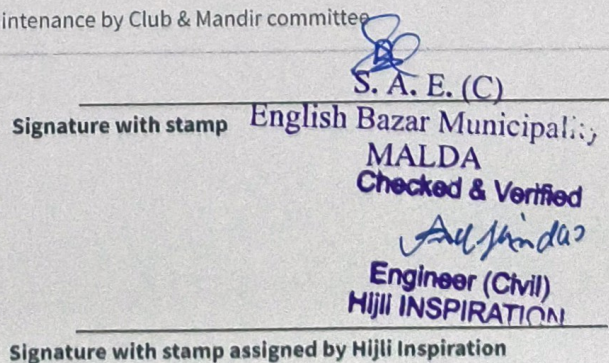 intenance by Club & Mandir committee
S. A. E. (C)
Signature with stamp English Bazar Municipality
MALDA
Checked & Verified
Engineer (Civil)
Hijli INSPIRATION
Signature with stamp assigned by Hijli Inspiration